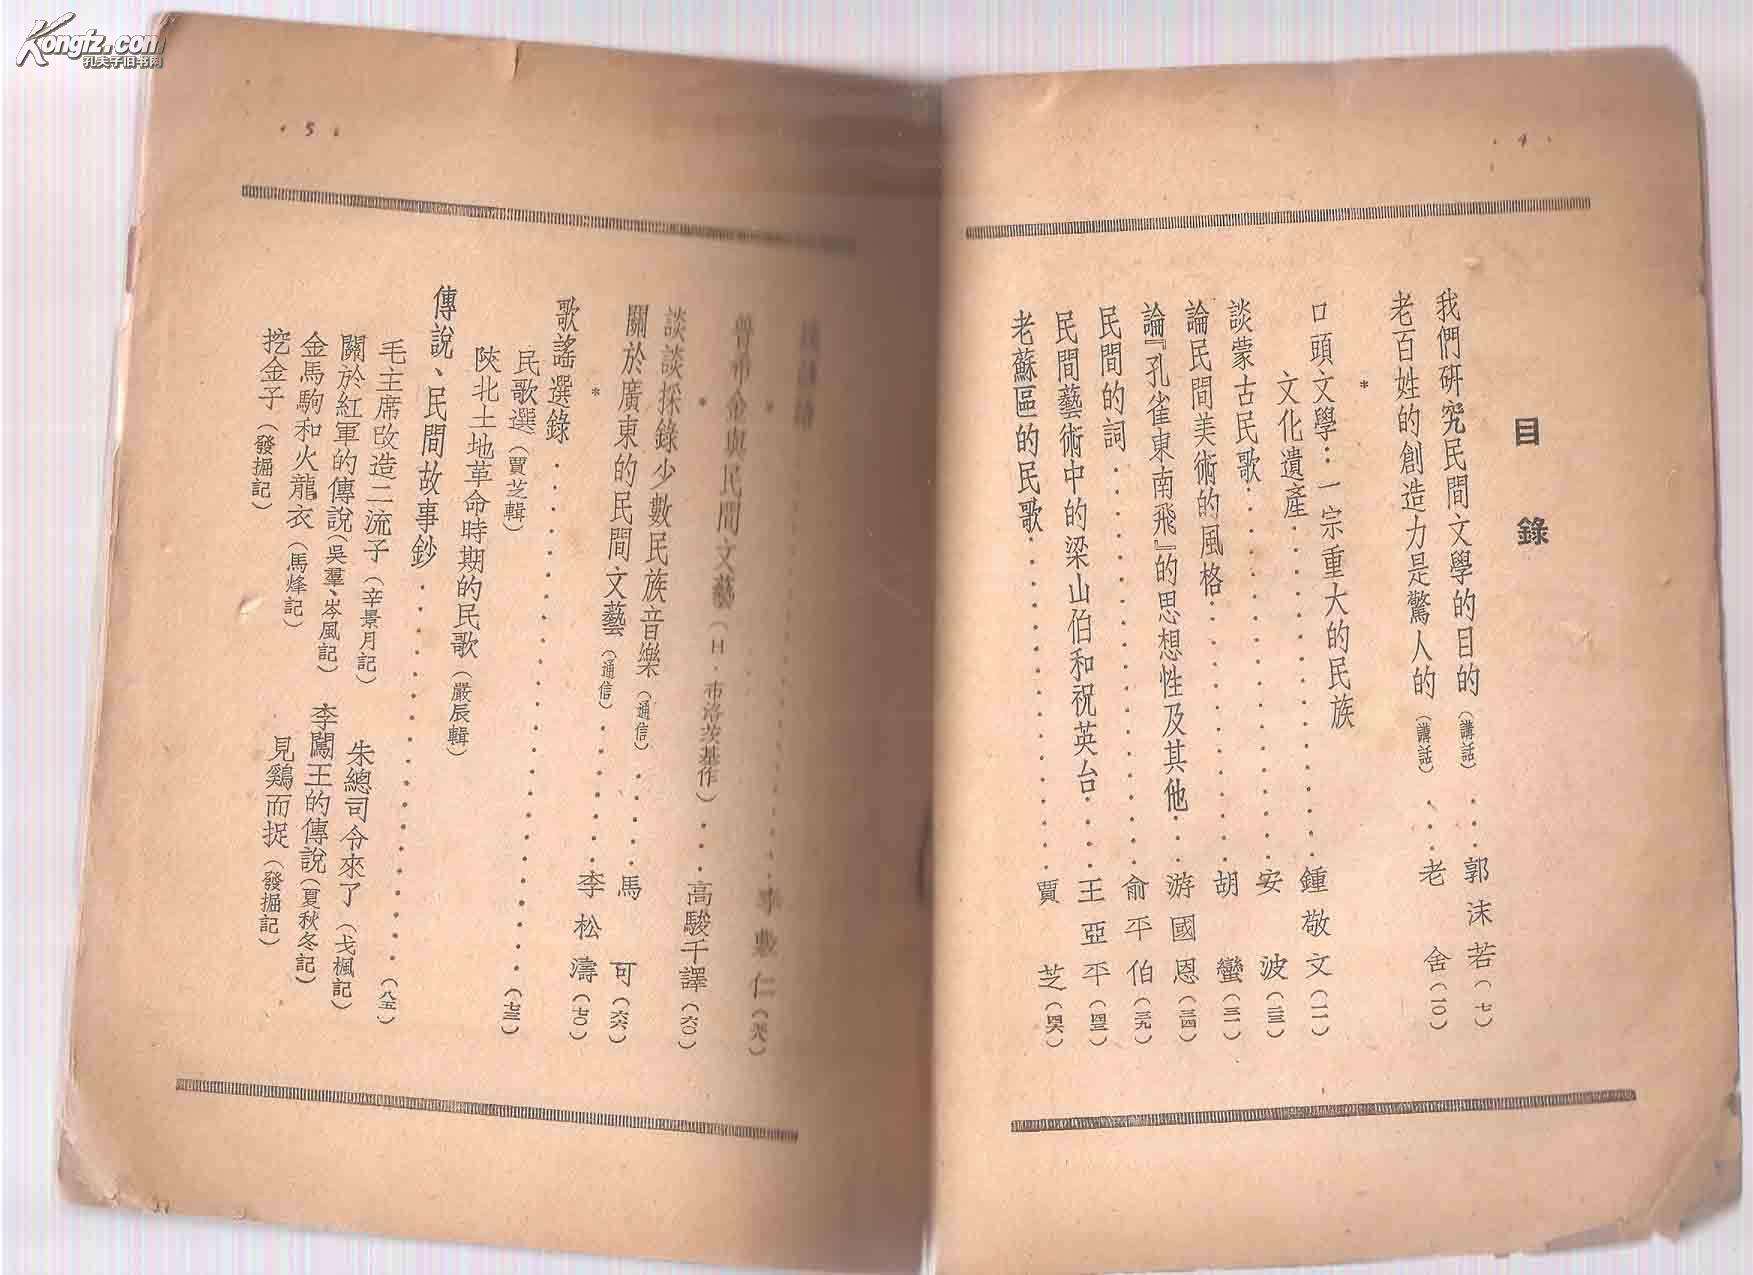 Kongfz.com
孔夫子旧书网
·4·
目錄
我們研究民間文學的目的（講話）...郭沫若（七）
老百姓的創造力是驚人的（講話）...老舍（一〇）
*
口頭文學：一宗重大的民族
文化遺產........鍾敬文（一一）
談蒙古民歌........安波（二三）
論民間美術的風格........胡蠻（三一）
論『孔雀東南飛』的思想性及其他..游國恩（三四）
民間的詞........俞平伯（三九）
民間藝術中的梁山伯和祝英台...王亞平（四三）
老蘇區的民歌........賈芝（四六）
·5·
李敷仁
*
普希金與民間文藝（H·布洛茨基作）...高駿千譯（六〇）
談談採錄少數民族音樂（通信）....馬可（六六）
關於廣東的民間文藝（通信）....李松濤（七〇）
*
歌謠選錄........（七三）
民歌選（賈芝輯）
陝北土地革命時期的民歌（嚴辰輯）
傳說、民間故事鈔........（八五）
毛主席改造二流子（辛景月記）
朱總司令來了（戈楓記）
關於紅軍的傳說（吳羣、岑風記）
李闖王的傳說（夏秋冬記）
金馬駒和火龍衣（馬烽記）
見鷄而捉（發掘記）
挖金子（發掘記）